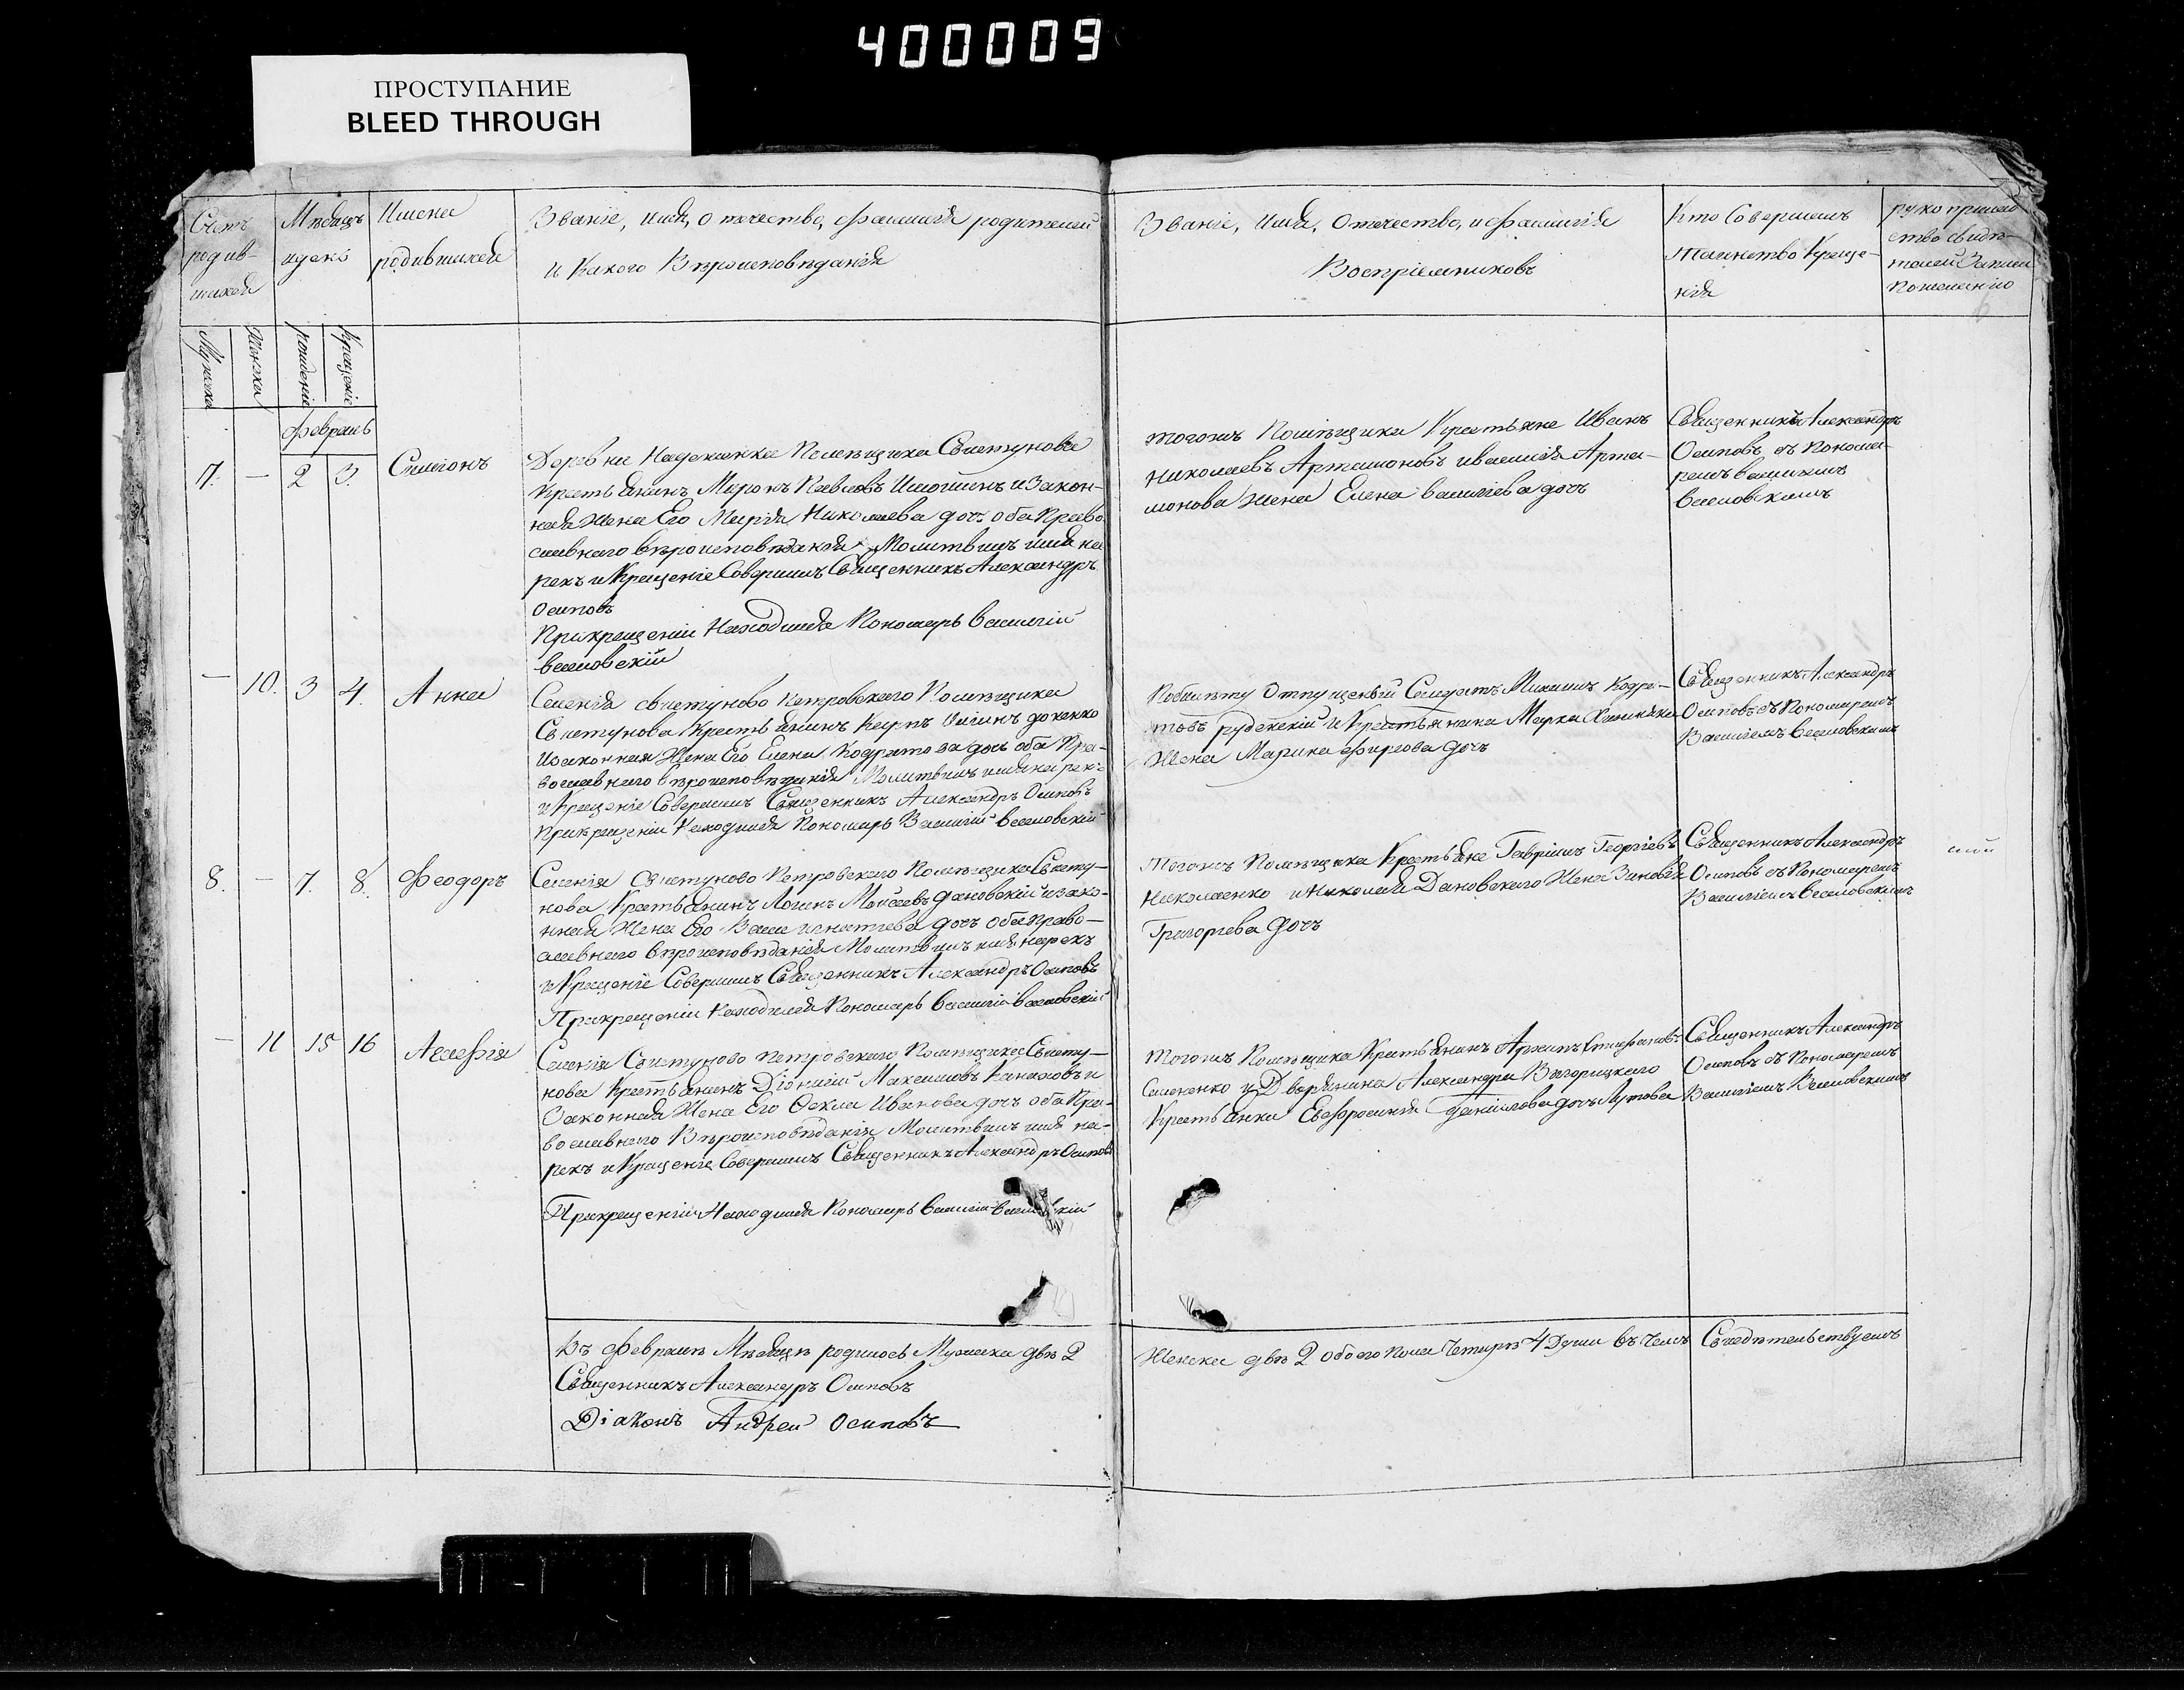 400009
ПРОСТУПАНИЕ
BLEED THROUGH
Счетъ родив-шихся
Мѣсяцъ идень
Имена родившихся
Званіе, имя, отечество, фамилія родителей
и Какого Вѣроисповѣданія
Званіе, Имя, Отечество, и фамилія
Воспріемниковъ
Кто Совершалъ
таинство Креще-
нія
рукоприклад
ство свидѣ-
телей Записи
По желанію
Мужска
Женска
Рожденіе
Крещеніе
февраль
7. — 2 3. Симіонъ
Деревни Надежинка Помѣщика Свистунова
Крестьянинъ Миронъ Павловъ и Закон-
ная Жена Его Марія Николаева дочь оба Право
славнаго вѣроисповѣданія Молитвилъ имя на
рекъ и Крещеніе Совершилъ Священникъ Александръ
Осиповъ
Прикрещеніи Находился Пономарь Василій
веселовскій
тогожъ Помѣщика Крестьяне Иванъ
Николаевъ Артамоновъ Арта-
монова Жена Елена василіева дочь
Священникъ Александръ
Осиповъ съ Понома-
ремъ василіемъ
веселовскимъ
— 10. 3 4. Анна
Селенія свистуново Петровскаго Помѣщика
Свистунова Крестьянинъ Карпъ
Изаконная Жена Его Елена Кодратова дочь оба Пра-
вославнаго вѣроисповѣданія Молитвилъ имя нарекъ
и Крещеніе Совершилъ Священникъ Александръ Осиповъ
Прикрещеніи Находился Пономарь Василій веселовскій
Побилѣту Отпущеный Солдатъ Михаилъ Кодра-
товъ руденскій И Крестьянина Марка
Жена Марина фирсова дочь
Священникъ Александръ
Осиповъ съ Пономаремъ
Василіемъ веселовскимъ
8. — 7. 8. Феодоръ
Селенія Свистуново Петровскаго Помѣщика Свисту-
нова Крестьянинъ Логинъ Моисеевъ дановскій изако-
нная Жена Его Васа игнатіева дочь оба право-
славнаго вѣроисповѣданія Молитвилъ имя нарекъ
и Крещеніе Совершилъ Священникъ Александръ Осиповъ
Прикрещеніи находился Пономарь василій веселовскій
Тогожъ Помѣщика Крестьяне Гавріилъ Георгіевъ
Николаенко и Николая Дановскаго Жена Зиновія
Григорьева дочь
Священникъ Александръ
Осиповъ съ Пономаремъ
Василіемъ Веселовскимъ
— 11 15 16 Агафія
Селенія Свистуново Петровскаго Помѣщика Свисту-
нова Крестьянинъ Діонисій Максимовъ и
Законная Жена Его Ѳекла Иванова дочь оба Пра-
вославнаго Вѣроисповѣданія Молитвилъ имя на-
рекъ и Крещеніе Совершилъ Священникъ Александръ Осиповъ
Прикрещеніи Находился Пономарь василій
Тогожъ Помѣщика Крестьянинъ Архипъ
Семененко и Дворянина Александра Вигорицкаго
Крестьянка Евфросинія данілова дочь
Священникъ Александръ
Осиповъ съ Пономаремъ
Василіемъ Веселовскимъ
Въ Февралѣ Мѣсяцѣ родилось Мужска двѣ 2
Женска двѣ 2 обоего пола Четырѣ 4 Души въ Чемъ Свидѣтельствуемъ
Священникъ Александръ Осиповъ
Діаконъ Андреи Осиповъ